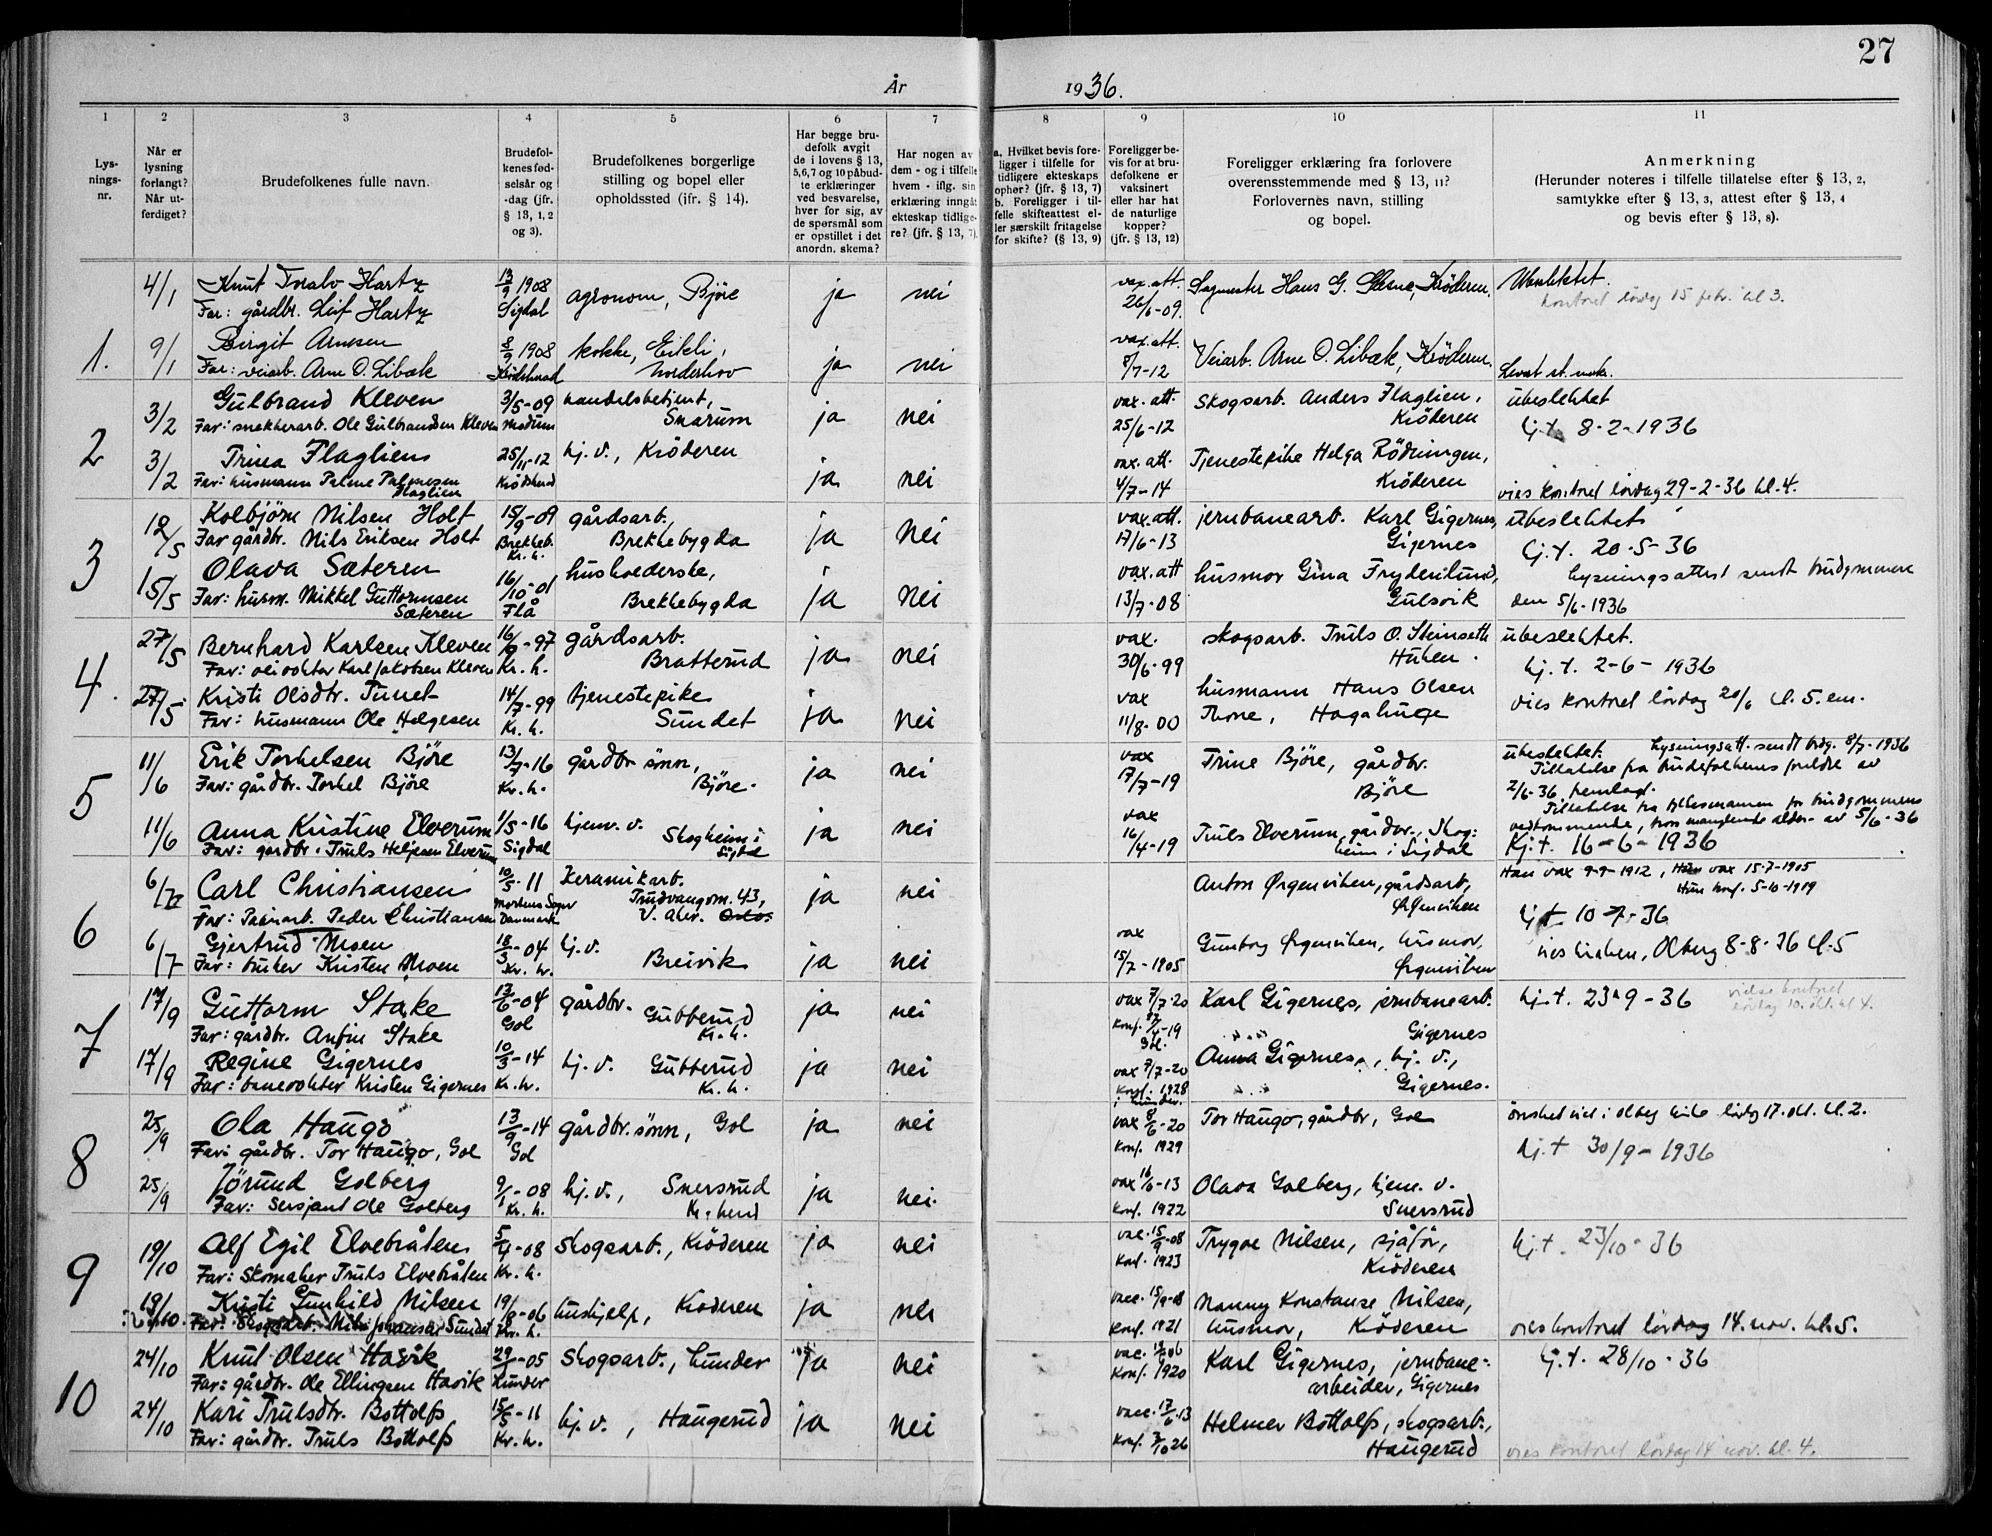 27
År 1936.
1
2
3
4
5
6
7
8
9
10
11
Lys-
nings-
nr.
Når er
lysning
forlangt?
Når ut-
ferdiget?
Brudefolkenes fulle navn.
Brudefol-
kenes fød-
selsår og
-dag (jfr.
§ 13, 1, 2
og 3).
Brudefolkenes borgerlige
stilling og bopel eller
opholdssted (ifr. § 14).
Har begge bru-
defolk avgit
de i lovens § 13,
5,6,7 og 10 påbud-
te erklæringer
ved besvarelse,
hver for sig, av
de spørsmål som
er opstillet i det
anordn. skema?
Har nogen av
dem - og i tilfelle
hvem - iflg. sin
erklæring inngått
ekteskap tidlige-
re? (jfr. § 13, 7).
a. Hvilket bevis fore-
ligger i tilfelle for
tidligere ekteskaps
ophør? (jfr. § 13, 7)
b. Foreligger i til-
felle skifteattest el-
ler særskilt fritagelse
for skifte? (§ 13, 9)
Foreligger be-
vis for at bru-
defolkene er
vaksinert
eller har hat
de naturlige
kopper?
(jfr. § 13, 12)
Foreligger erklæring fra forlovere
overensstemmende med § 13, 11?
Forlovernes navn, stilling
og bopel.
Anmerkning
(Herunder noteres i tilfelle tillatelse efter § 13, 2,
samtykke efter § 13, 3, attest efter § 13, 4
og bevis efter § 13, 8).
1.
4/1 Knut Toralv Hartz 13/9 1908 agronom, Björe ja nei vax.att. Sagmester Hans G. Krøderen. Ubeslektet.
Far: gårdbr. Leif Hartz Sigdal 26/6-09. kontoret lördag 15 febr. kl 3.
9/1 Birgit Arnesen 8/9 1908 kokke, Eikli, ja nei vax.att. Veiarb. Arne O. Libæk, Krøderen.
Far: veiarb. Arne O. Libæk Krødsherad Norderhov 8/7-12
2
3/2 Gulbrand Kleven 3/5-09 handelsbetjent, ja nei vax. att. Skogsarb. Anders Flaglien, ubeslektet
Far: snekkerarb. Ole Gulbrandsen Kleven Modum Snarum 25/6-12 Krøderen kj.t. 8-2-1936
3/2 Trina Flaglien 25/11-12 hj.v., Krøderen ja nei vax. att. Tjenestepike Helga Rödningen,
Far: husmann Palme Palmesen Flaglien Krødsherad 4/7-14 Krøderen vies kontoret lördag 29-2-36 kl.4.
3
12/5 Kolbjörn Nilsen Holt 15/9-09 gårdsarb., ja nei vax.att. jernbanearb. Karl Gigernes, ubeslektet
Far gårdbr. Nils Eriksen Holt Brekkeb. Kr.h. Brekkebygda 17/6-13 Gigernes kj.t. 20-5-36
15/5 Olava Sæteren 16/10-01 husholderske, ja nei vax.att husmor Gina Frydenlund, lysningsattest sendt brudgommen
Far: husm. Mikkel Guttormsen Sæteren Flå Brekkebygda 13/7-08 Gulsvik den 5/6-1936
4.
27/5 Bernhard Karlsen Kleven 16/9-97 gårdsarb. ja nei vax. skogsarb. Truls O. Steinseth ubeslektet.
Far: veivokter Karl Jakobsen Kleven Kr. h. Bratterud 30/6-99 kj.t. 2-6-1936
27/5 Kristi Olsdtr. Tunet 14/7-99 tjenestepike ja nei vax husmann Hans Olsen vies kontoret lördag 20/6 kl.5.em.
Far: husmann Ole Helgesen Kr. h. Sundet 11/8-00 Thone,
5
11/6 Erik Torkelsen Björe 13/7-16 gårdbr.sønn, ja nei vax Trine Björe, gårdbr. ubeslektet. Lysningsatt. sendt brdg. 8/7-1936
Far: gårdbr. Torkel Björe Kr. h. Björe. 17/7-19 Björe Tillatelse fra brudefolkenes foreldre av
2/6-36 fremlagt.
Tillatelse fra fylkesmannen for brudgommens
11/6 Anna Kristine Elverum 1/5-16 hjem.v. ja nei vax Truls Elverum, gårdbr., Skog- vedkommende, hvor manglende alder av 5/6-36
Far: gårdbr. Truls Helgesen Elverum Sigdal Skogheim i Sigdal 16/4-19 heim i Sigdal Kj.t. 16-6-1936
6
6/7 Carl Christiansen 10/5-11 Keramikarb. ja nei Anton Ørgenviken, gårdsarb, Han vax 9-9-1912, Hun vax 15-7-1905
Far: Peder Christiansen Danmark Trudvangvn. 43, V. Aker. Ørgenviken Hun konf. 5-10-1919
kj.t 10-7-36
6/7 Gjertrud Moen 18/3-04 hj.v. ja nei vax Gunborg Ørgenviken, husmor, vies kirken, Olberg 8-8-36 kl.5
Far: Kristen Moen Kr. h. Breivik 15/7-1905 Ørgenviken
7
17/9 Guttorm Stake 13/6-04 gårdbr. ja nei vax 7/7-20 Karl Gigernes, jernbanearb. kj.t. 23-9-36 vielse kontoret
Far: gårdbr. Anfin Stake Gol Gubberud Kr.h. Konf. Gol. Gigernes lördag 10. okt. kl 4.
17/9 Regine Gigernes 10/3-14 hj.v. Gubberud ja nei vax 7/7-20 Anna Gigernes, hj. v.,
Far: banevokter Kristen Gigernes Kr. h. Kr. h. Konf. 1928 Gigernes.
8
25/9 Ola Haugo 13/9-14 gårdbr.sønn, Gol ja nei vax 8/6-20 Tor Haugo, gårdbr, Gol ønsket viet i olberg kirke lördag 17.okt. kl.2.
Far: gårdbr. Tor Haugo, Gol Gol Konf. 1929 kj.t 30/9-1936
25/9 Jörund Golberg 9/1-08 hj.v., Snersrud ja nei. vax 16/6-13 Olava Golberg, hjem. v.
Far: Sersjant Ole Golberg Kr. h. Kr. herad Konf. 1922 Snersrud
9
19/10 Alf Egil Elvebråten 5/4-08 skogsarb., Krøderen ja nei vac. 15/9-08 Trygve Nilsen, sjåfør, kj.t. 23/10-36
Far: Skomaker Truls Elvebråten Kr. h. Konf. 1923 Krøderen
19/10 Kristi Gunhild Nilsen 19/8-06 hushjelp, Krøderen ja nei vacc. 15/9-08 Nanny Konstanse Nilsen,
Far: Skogsarb. Nils Johansen Sundet Kr. h. Konf. 1921 husmor, Krøderen vies kontoret lördag 14. nov. kl.5.
10
24/10 Knut Olsen Havik 29/-05 skogsarb., Lunder ja nei vac. Karl Gigernes, jernbane- kj.t. 28/10-36
Far: gårdbr. Ole Ellingsen Havik Lunder Konf. 1920 arbeider, Gigernes
24/10 Kari Trulsdtr. Bottolfs 15/5-11 hj.v., Haugerud ja nei vacc. 17/6.13 Helmer Bottolfs, skogsarb.,
Far: gårdbr. Truls Bottolfs Kr. h. Konf. 3/10 26 Haugerud vies kontoret lördag 14 nov. kl. 4.